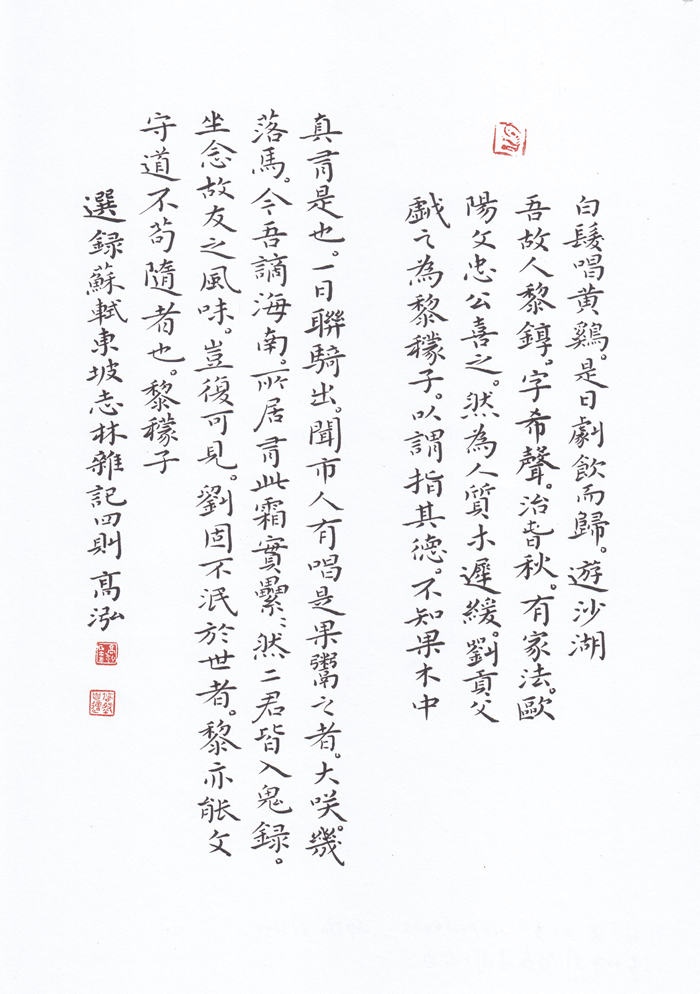 白髮唱黃鷄。是日劇飲而歸。遊沙湖
吾故人黎錞。字希聲。治春秋。有家法。歐
陽文忠公喜之。然為人質木遲緩。劉貢父
戲之為黎檬子。以謂指其德。不知果木中
真有是也。一日聯騎出。聞市人有唱是果鬻之者。大咲。幾
落馬。今吾謫海南。所居有此霜實纍〻。然二君皆入鬼録。
坐念故友之風味。豈復可見。劉固不泯於世者。黎亦能文
守道不苟隨者也。黎檬子
選録蘇軾東坡志林雜記四則 高泓